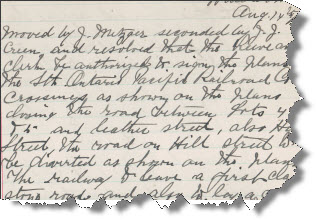 Aug. 1
Moved by J. Metzger seconded by J. J.
Green, and resolved that the Reeve an
Clerk be authorized to sign the Plans
The Sth Ontario Pacific Railroad Co
Crossings as shown on the Plans
closing the road between Lots
and street, also H
Street, the road on Hill street to
be diverted as shown on the Plan
The railway to leave a first Cla
stone road and also to lay a